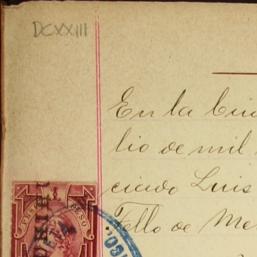 DCXXIII
En la Ciu
lio de mil
ciado Luis
Tello de Me
PESO